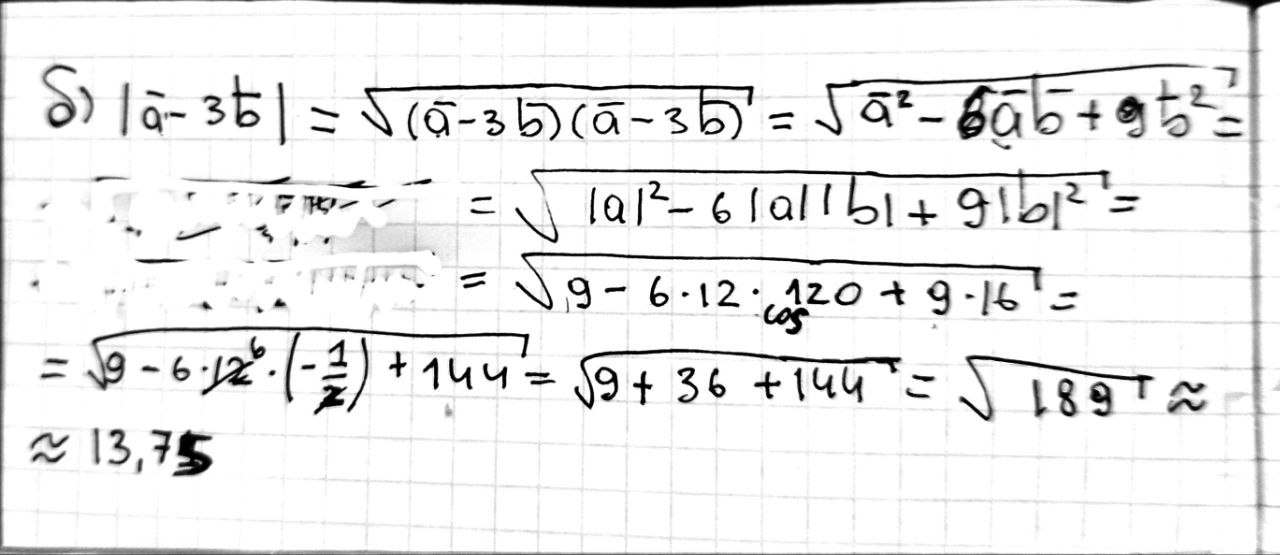 б) |ā - 3b̄| = √(ā - 3b̄)(ā - 3b̄) = √ā² - 6āb̄ + 9b̄² =
= √|a|² - 6|a||b| + 9|b|² =
= √9 - 6·12·cos 120 + 9·16 =
= √9 - 6·12⁶·(-1/2) + 144 = √9 + 36 + 144 = √189 ≈
≈ 13,75